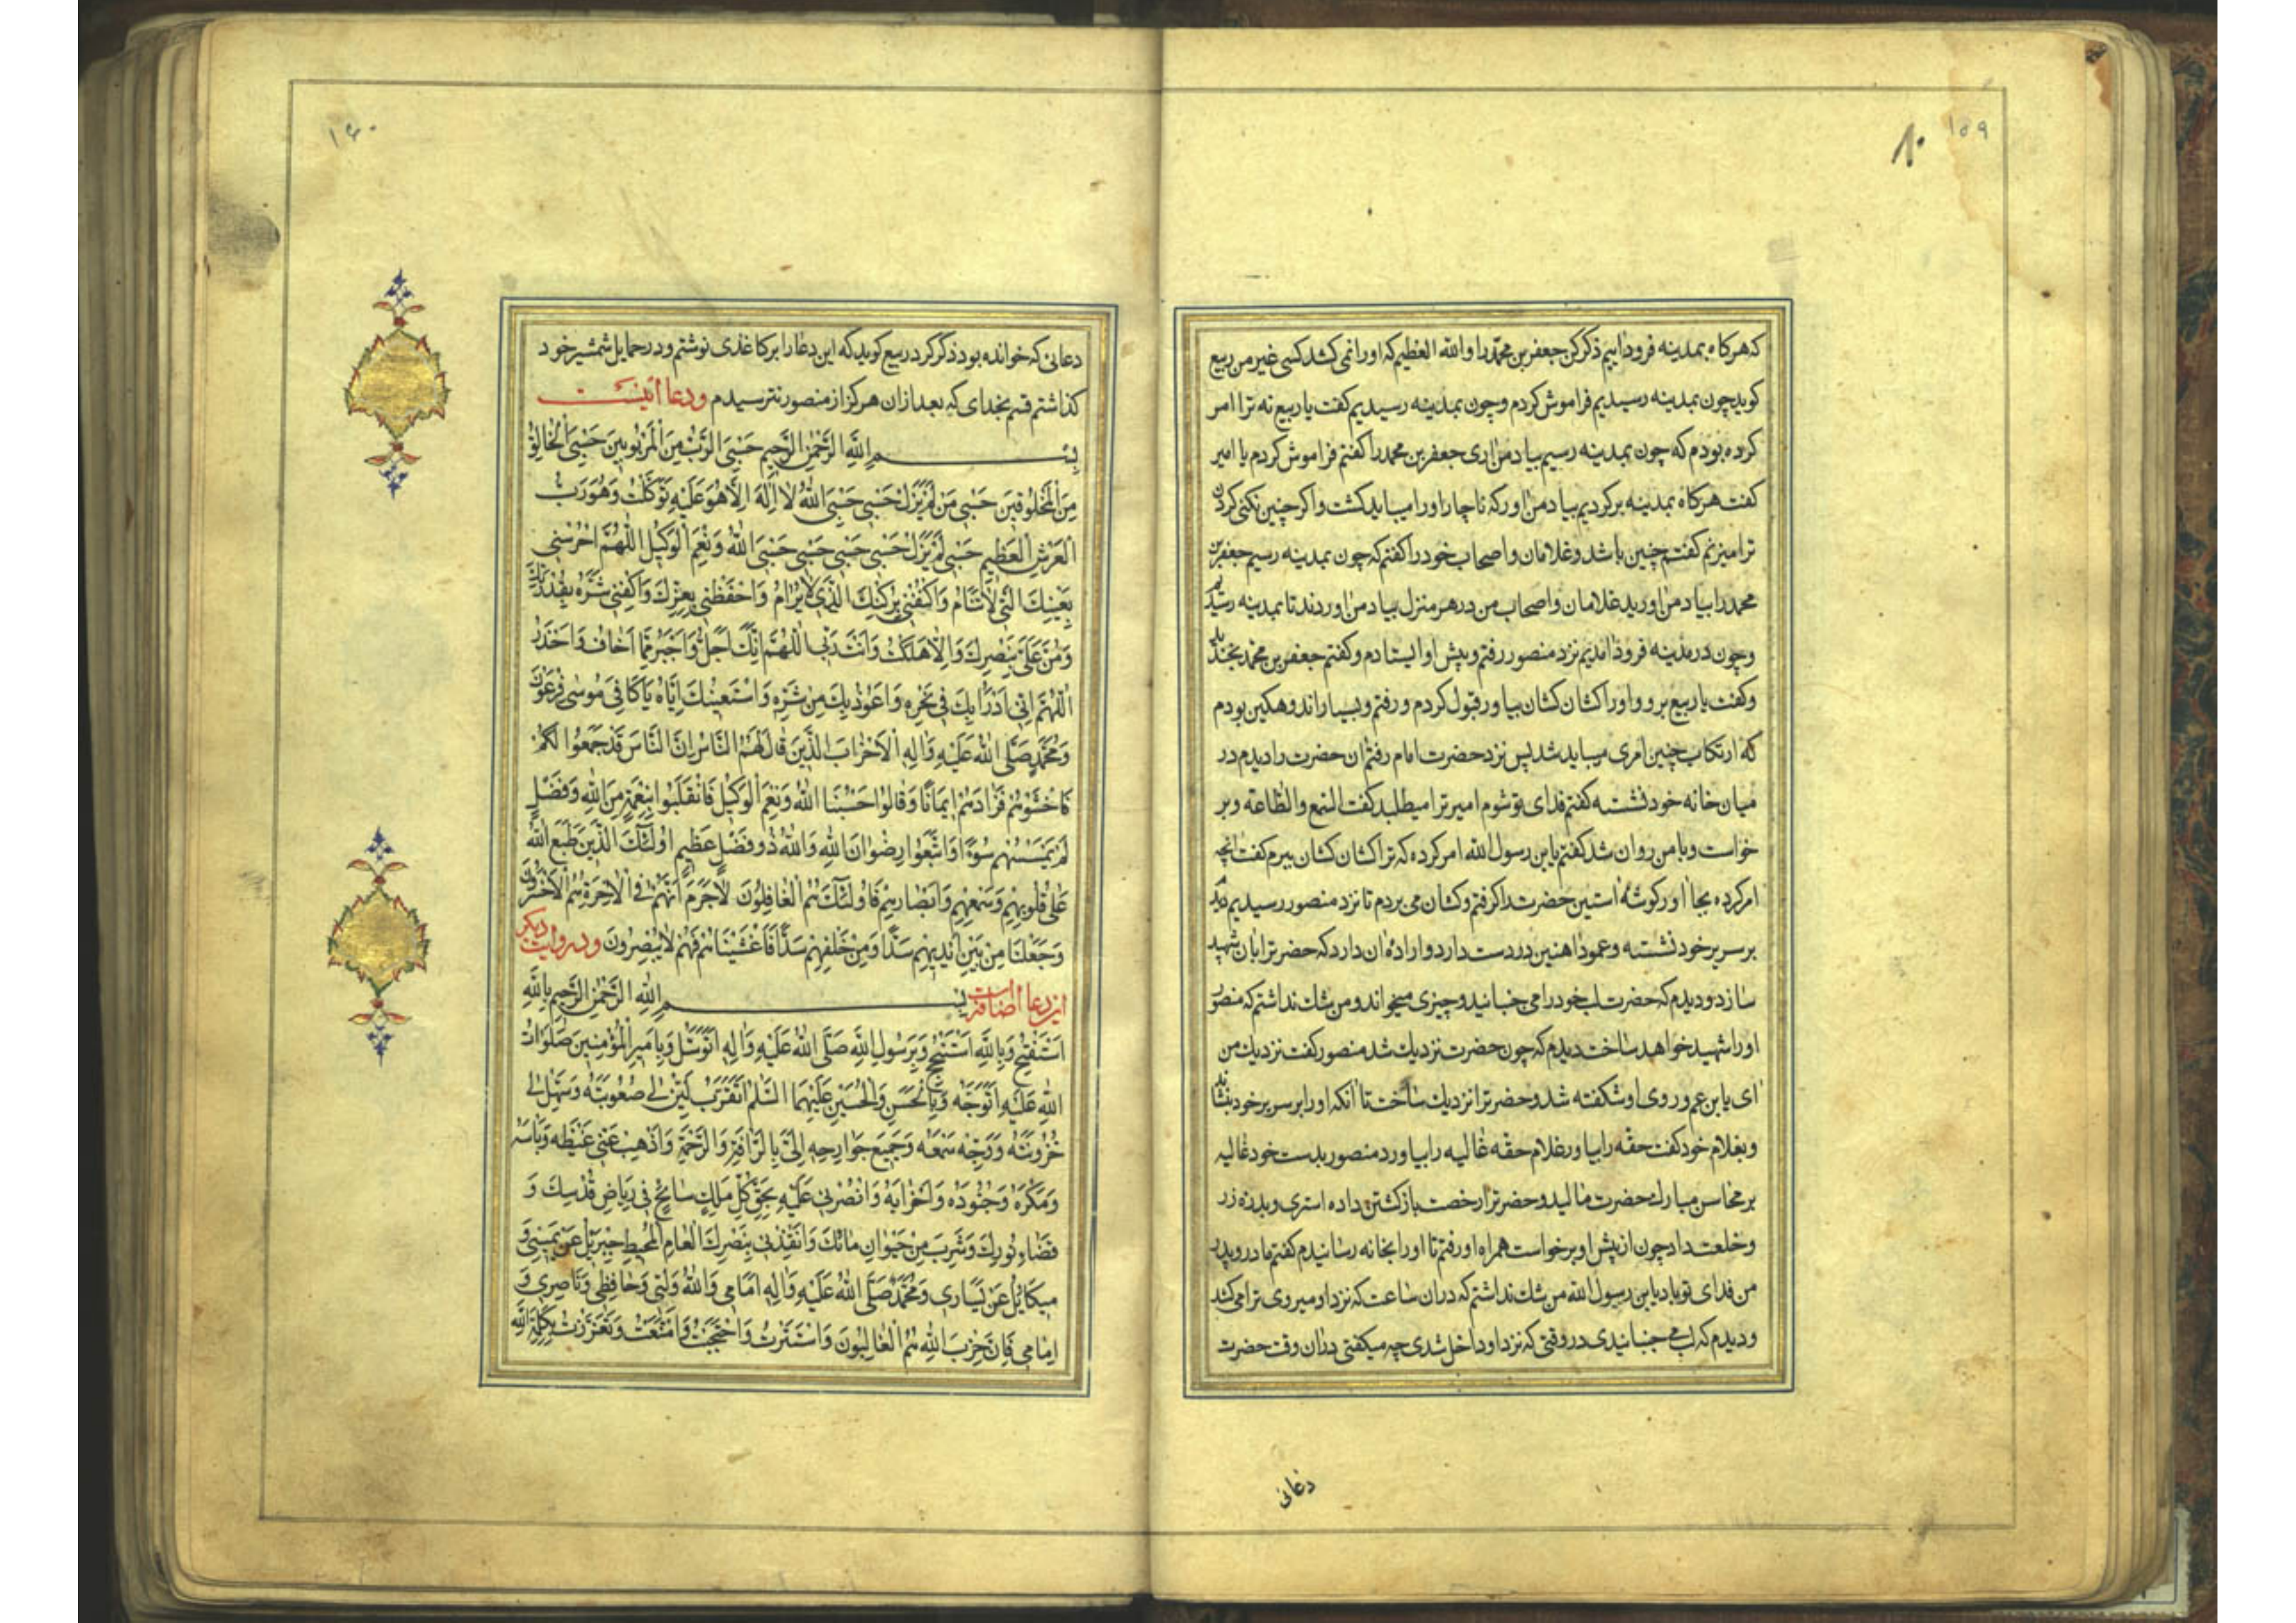 ۱۵۹
۸۰
که هرکاه بمدینه فرود اییم ذکر کن جعفر بن محمّد را والله العظیم که اورا نمی کشد کسی غیر من ربیع
کوید چون بمدینه رسیدیم فراموش کردم و چون بمدینه رسیدیم کفت یا ربیع نه ترا امر
کرده بودم که چون بمدینه رسیم بیاد من اری جعفر بن محمد را کفتم فراموش کردم یا امیر
کفت هرکاه بمدینه برکردیم بیاد من اور که ناچار اورا میباید کشت و اکر چنین نکنی کردن
ترا میزنم کفتم چنین باشد و غلامان و اصحاب خود را کفتم که چون بمدینه رسیم جعفر بن
محمد را بیاد من اورید غلامان و اصحاب من در هر منزل بیاد من اوردند تا بمدینه رسیدیم
و چون در مدینه فرود امدیم نزد منصور رفتم و پیش او ایستادم و کفتم جعفر بن محمد بخندید
و کفت یا ربیع برو و اورا کشان کشان بیاور قبول کردم و رفتم و بسیار اندوهکین بودم
که ارتکاب چنین امری میباید شد پس نزد حضرت امام رفتم ان حضرت را دیدم در
میان خانه خود نشسته کفتم فدای تو شوم امیر ترا میطلبد کفت السّمع والطّاعة و بر
خواست و با من روان شد کفتم یابن رسول الله امر کرده که ترا کشان کشان ببرم کفت انچه
امر کرده بجا اور کوشهٔ استین حضرت را کرفتم و کشان می بردم تا نزد منصور رسیدیم دیدم
بر سریر خود نشسته و عمود اهنین در دست دارد و ارادهٔ ان دارد که حضرترا بان شهید
سازد و دیدم که حضرت لب خود را می جنبانید و چیزی میخواند و من شک نداشتم که منصور
اورا شهید خواهد ساخت دیدم که چون حضرت نزدیک شد منصور کفت نزدیک من
ای یابن عم و روی او شکفته شد و حضرترا نزدیک ساخت تا انکه اورا بر سریر خود بنشاند
و بغلام خود کفت حقّه را بیاور غلام حقّه غالیه را بیاورد منصور بدست خود غالیه
بر محاسن مبارک حضرت مالید و حضرترا رخصت بازکشتن داده استری و بدره زر
و خلعت داد چون از پیش او برخواست همراه او رفتم تا اورا بخانه رسانیدم کفتم مادر و پدر
من فدای تو باد یابن رسول الله من شک نداشتم که دران ساعت که نزد او میروی ترا می کشد
و دیدم که لب می جنبانیدی در وقتی که نزد او داخل شدی چه میکفتی دران وقت حضرت
دعائی
۱۶۰
دعائی که خوانده بود ذکر کرد ربیع کوید که این دعا را بر کاغذی نوشتم و در حمایل شمشیر خود
کذاشتم قسم بخدای که بعد ازان هرکز از منصور نترسیدم و دعا اینست
بِسْمِ اللهِ الرَّحْمٰنِ الرَّحِيمِ حَسْبِيَ الرَّبُّ مِنَ الْمَرْبُوبِينَ حَسْبِيَ الْخَالِقُ
مِنَ الْمَخْلُوقِينَ حَسْبِي مَنْ لَمْ يَزَلْ حَسْبِي حَسْبِيَ اللهُ لَا إِلٰهَ إِلَّا هُوَ عَلَيْهِ تَوَكَّلْتُ وَهُوَ رَبُّ
الْعَرْشِ الْعَظِيمِ حَسْبِي لَمْ يَزَلْ حَسْبِي حَسْبِي حَسْبِي حَسْبِيَ اللهُ وَنِعْمَ الْوَكِيلُ اللّٰهُمَّ احْرُسْنِي
بِعَيْنِكَ الَّتِي لَا تَنَامُ وَاكْنُفْنِي بِرُكْنِكَ الَّذِي لَا يُرَامُ وَاحْفَظْنِي بِعِزِّكَ وَاكْفِنِي شَرَّهُ بِقُدْرَتِكَ
وَمُنَّ عَلَيَّ بِنَصْرِكَ وَإِلَّا هَلَكْتُ وَأَنْتَ رَبِّي اللّٰهُمَّ إِنَّكَ أَجَلُّ وَأَجْبَرُ مِمَّا أَخَافُ وَأَحْذَرُ
اللّٰهُمَّ إِنِّي أَدْرَأُ بِكَ فِي نَحْرِهِ وَأَعُوذُ بِكَ مِنْ شَرِّهِ وَأَسْتَعِينُكَ إِيَّاهُ يَا كَافِيَ مُوسٰى فِرْعَوْنَ
وَمُحَمَّدٍ صَلَّى اللهُ عَلَيْهِ وَآلِهِ الْأَحْزَابَ الَّذِينَ قَالَ لَهُمُ النَّاسُ إِنَّ النَّاسَ قَدْ جَمَعُوا لَكُمْ
فَاخْشَوْهُمْ فَزَادَهُمْ إِيمَانًا وَقَالُوا حَسْبُنَا اللهُ وَنِعْمَ الْوَكِيلُ فَانْقَلَبُوا بِنِعْمَةٍ مِنَ اللهِ وَفَضْلٍ
لَمْ يَمْسَسْهُمْ سُوءٌ وَاتَّبَعُوا رِضْوَانَ اللهِ وَاللهُ ذُو فَضْلٍ عَظِيمٍ أُولٰئِكَ الَّذِينَ طَبَعَ اللهُ
عَلٰى قُلُوبِهِمْ وَسَمْعِهِمْ وَأَبْصَارِهِمْ فَأُولٰئِكَ هُمُ الْغَافِلُونَ لَا جَرَمَ أَنَّهُمْ فِي الْآخِرَةِ هُمُ الْأَخْسَرُونَ
وَجَعَلْنَا مِنْ بَيْنِ أَيْدِيهِمْ سَدًّا وَمِنْ خَلْفِهِمْ سَدًّا فَأَغْشَيْنَاهُمْ فَهُمْ لَا يُبْصِرُونَ و در روایت دیکر
این دعا اضافه است بِسْمِ اللهِ الرَّحْمٰنِ الرَّحِيمِ بِاللهِ
أَسْتَفْتِحُ وَبِاللهِ أَسْتَنْجِحُ وَبِرَسُولِ اللهِ صَلَّى اللهُ عَلَيْهِ وَآلِهِ أَتَوَسَّلُ وَبِأَمِيرِ الْمُؤْمِنِينَ صَلَوَاتُ
اللهِ عَلَيْهِ أَتَوَجَّهُ وَبِالْحَسَنِ وَالْحُسَيْنِ عَلَيْهِمَا السَّلٰمُ أَتَقَرَّبُ لَيِّنْ لِي صُعُوبَتَهُ وَسَهِّلْ لِي
حُزُونَتَهُ وَوَجِّهْ سَمْعَهُ وَجَمِيعَ جَوَارِحِهِ إِلَيَّ بِالرَّأْفَةِ وَالرَّحْمَةِ وَأَذْهِبْ عَنِّي غَيْظَهُ وَبَأْسَهُ
وَمَكْرَهُ وَجُنُودَهُ وَأَحْزَابَهُ وَانْصُرْنِي عَلَيْهِ بِحَقِّ كُلِّ مَلَكٍ سَائِحٍ فِي رِيَاضِ قُدْسِكَ وَ
فَضَاءِ نُورِكَ وَشَرِبَ مِنْ حَيَوَانِ مَائِكَ وَأَنْقِذْنِي بِنَصْرِكَ الْعَامِّ الْمُحِيطِ جِبْرِيلُ عَنْ يَمِينِي وَ
مِيكَائِلُ عَنْ يَسَارِي وَمُحَمَّدٌ صَلَّى اللهُ عَلَيْهِ وَآلِهِ أَمَامِي وَاللهُ وَلِيِّي وَحَافِظِي وَنَاصِرِي وَ
إِمَامِي فَإِنَّ حِزْبَ اللهِ هُمُ الْغَالِبُونَ وَاسْتَتَرْتُ وَاحْتَجَبْتُ وَامْتَنَعْتُ وَتَعَزَّزْتُ بِكَلِمَةِ اللهِ